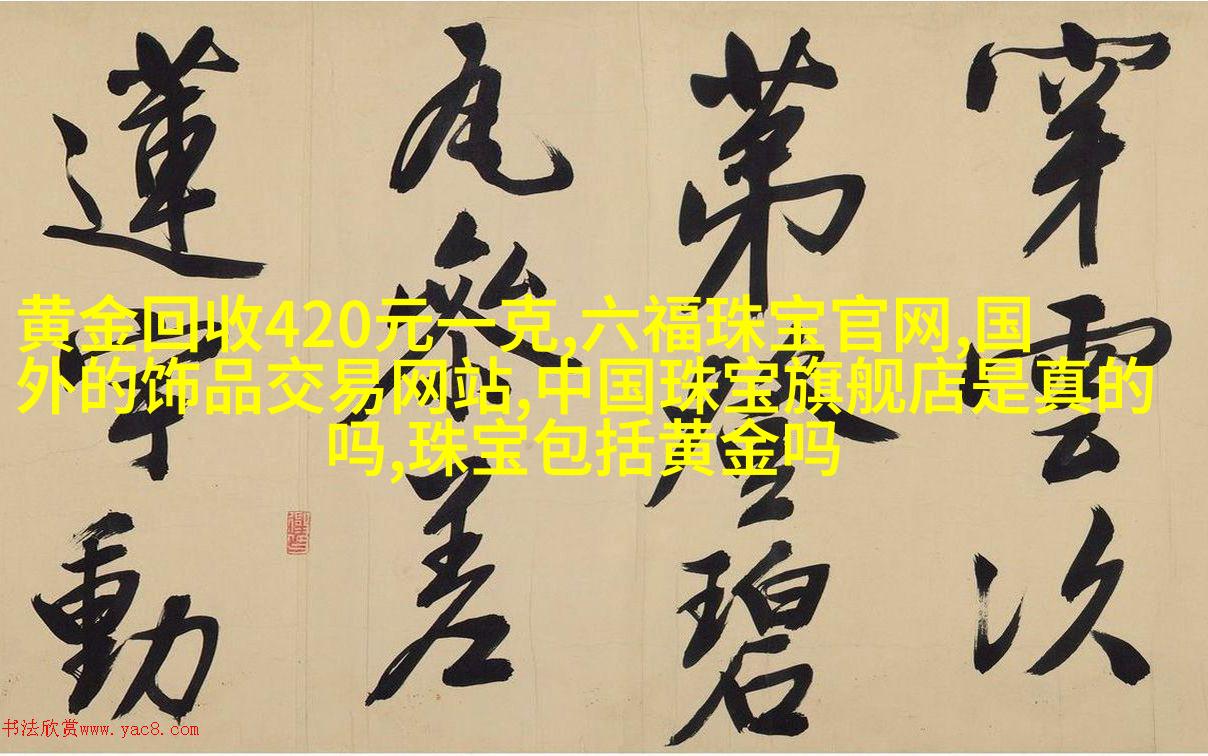 穿雲次
第磴碧
瓦參差
蓮宇動
黄金回收420元一克,六福珠宝官网,国
外的饰品交易网站,中国珠宝旗舰店是真的
吗,珠宝包括黄金吗
书法欣赏www.yac8.com